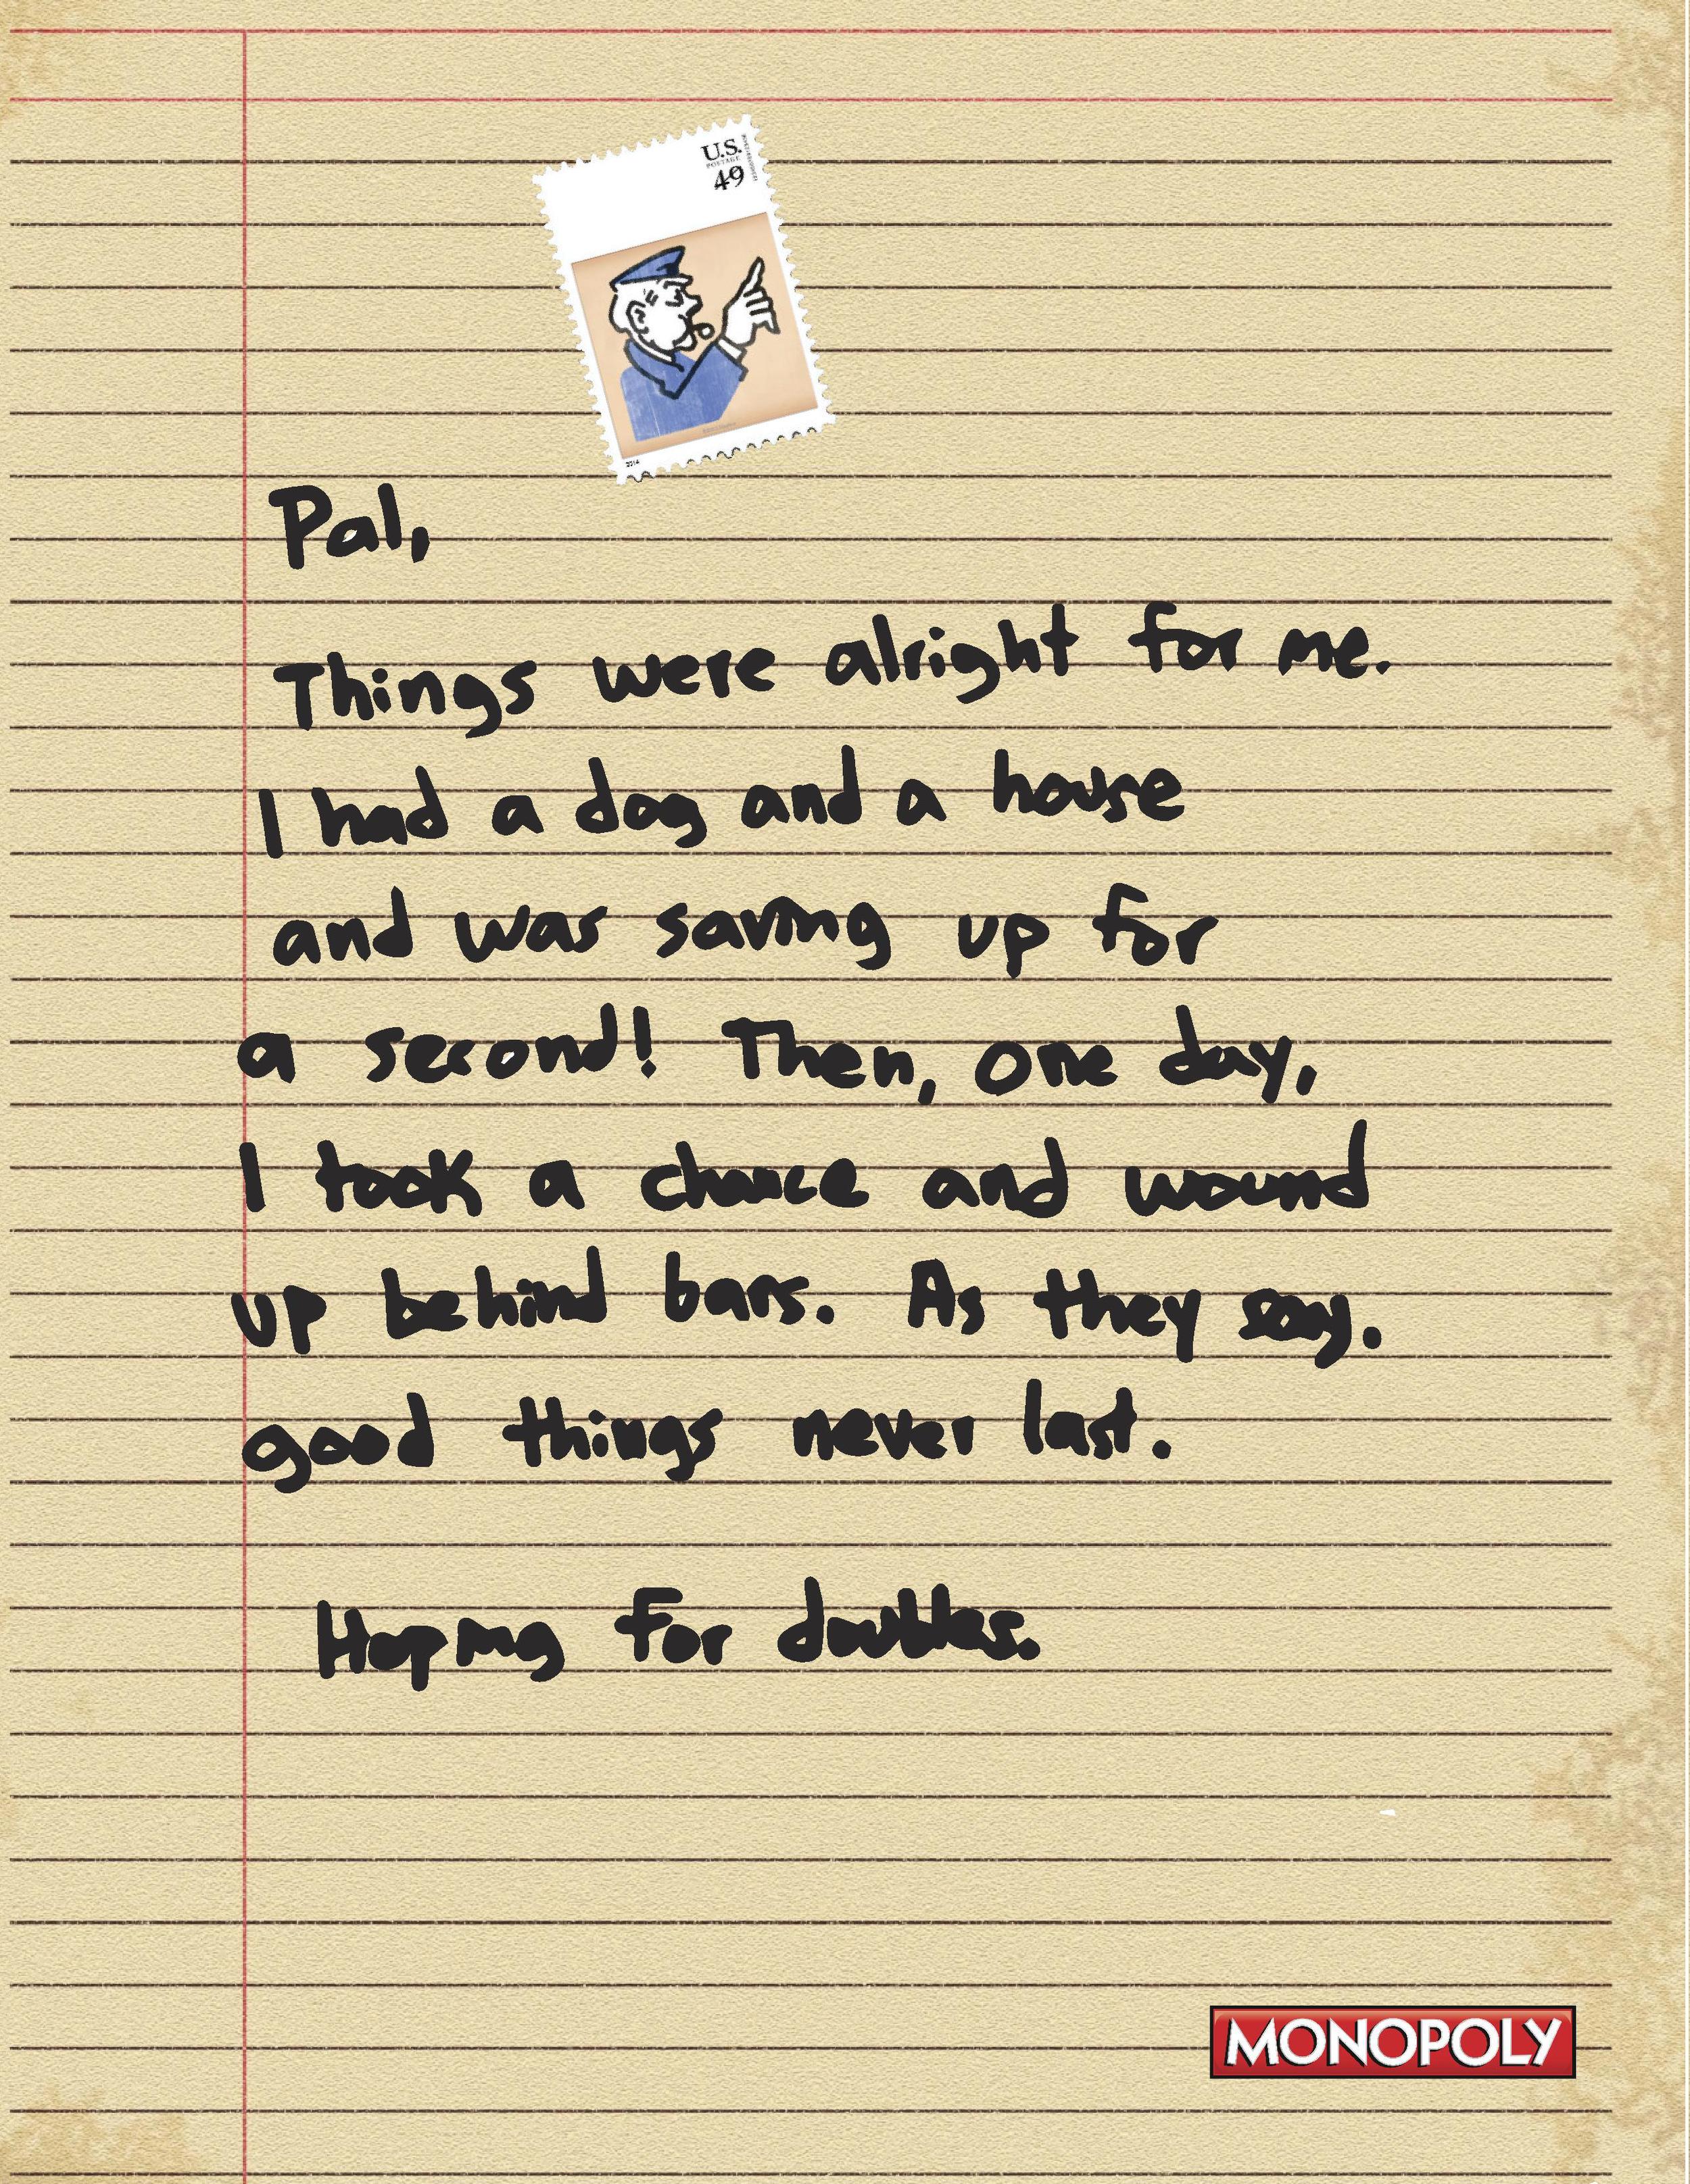 U.S.
POSTAGE
49
2014
Pal,
Things were alright for me.
I had a dog and a house
and was saving up for
a second! Then, one day,
I took a chance and wound
up behind bars. As they say.
good things never last.
Hoping for doubles.
MONOPOLY